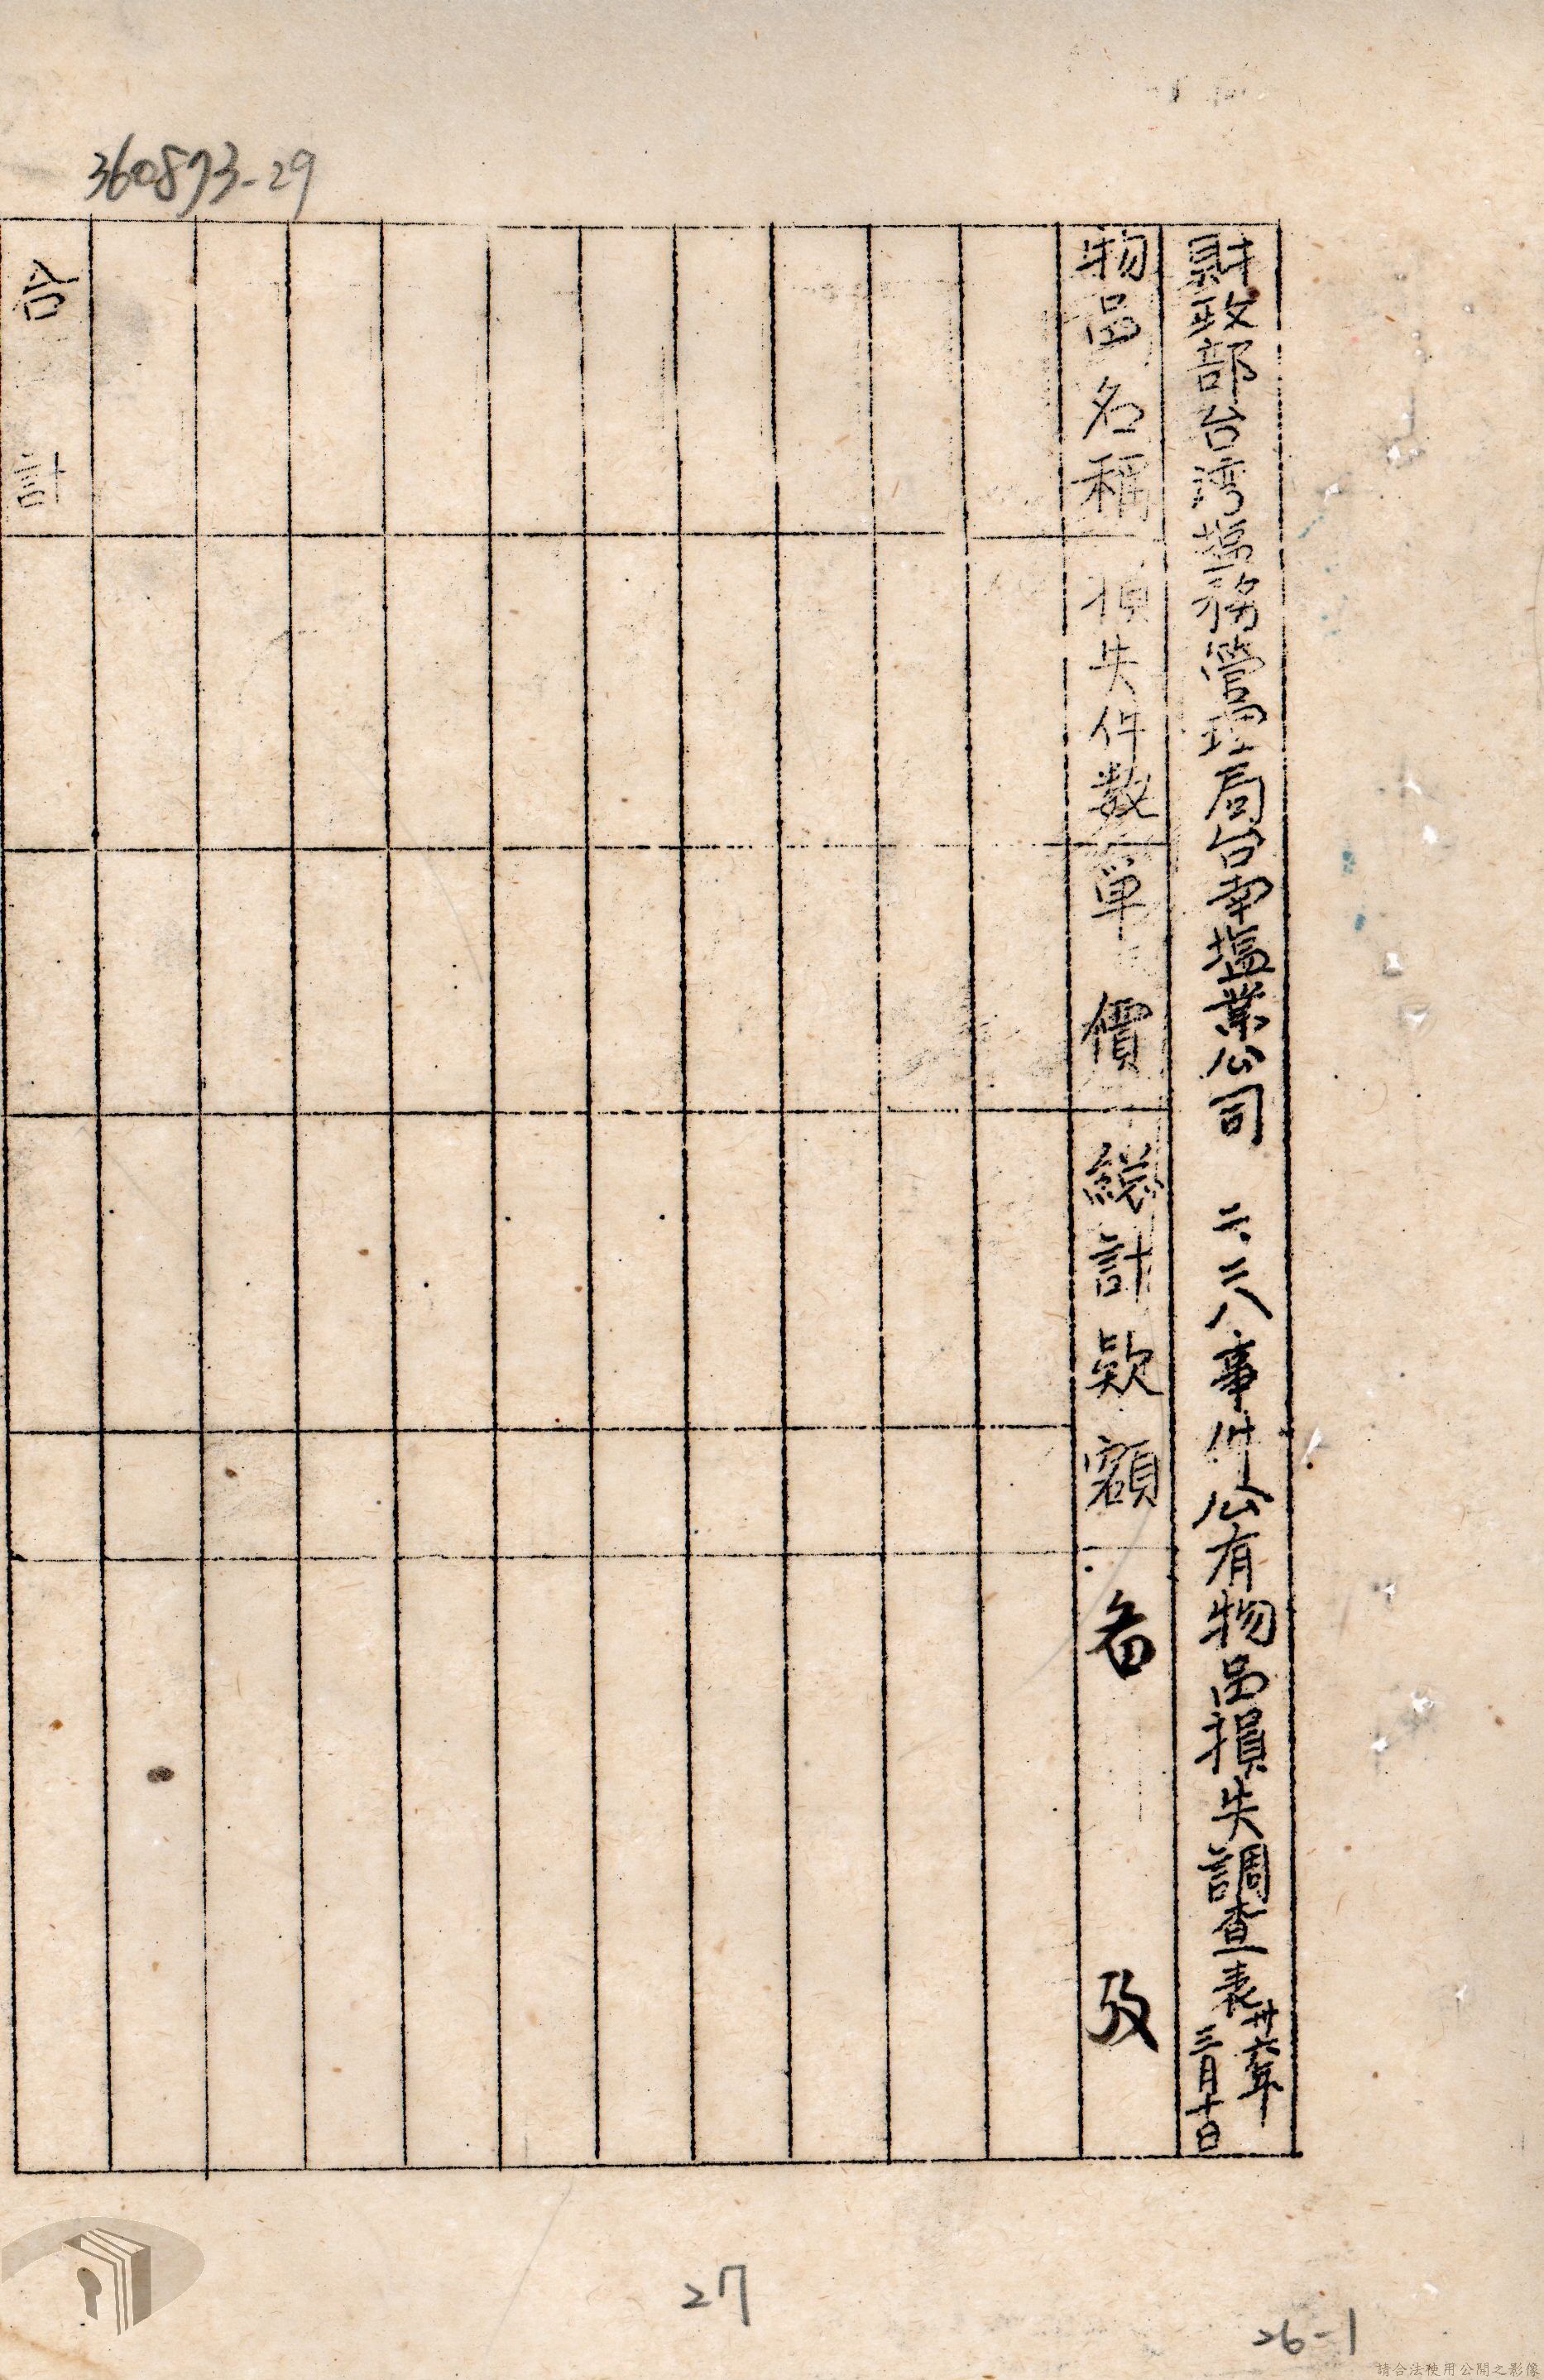 360873-29
財政部台湾塩務管理局台南塩業公司 二.二八事件公有物品損失調查表
卅六年
三月十日
物品名稱
損失件数
單價
総計款額
备考
合計
27
26-1
請合法使用公開之影像